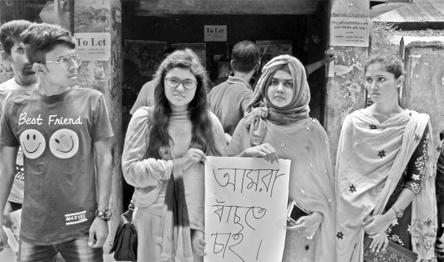 To Let
To Let
BEST FRIEND
MARVEL
আমরা
বাঁচতে
চাই।